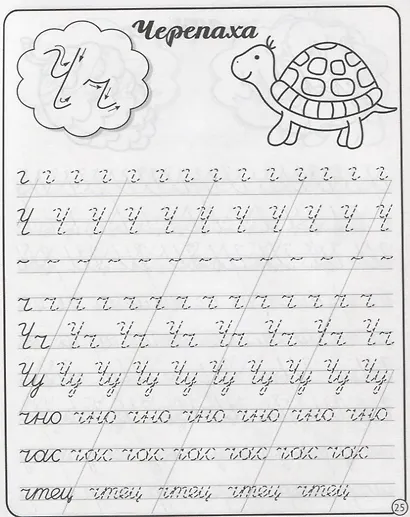 Черепаха
Ч ч
Ч Ч Ч Ч Ч Ч Ч Ч Ч Ч Ч
ч ч ч ч ч ч ч ч ч ч ч ч ч
Чч Чч Чч Чч Чч Чч Чч Чч
Чу Чу Чу Чу Чу Чу Чу Чу Чу Чу
чно чно чно чно чно чно чно
час час час час час час час
чтец чтец чтец чтец чтец
25